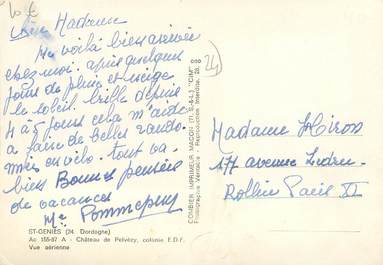 Madame
Me voilà bien arrivée
chez moi. après quelques
jours de pluie et neige
le soleil brille depuis
4 à 5 jours cela m'aide
a faire de belles rando.
mais en vélo. tout va
bien Bonnes pensées
de vacances
24
Madame
177 avenue Ledru
Rollin Paris XI
COMBIER IMPRIMEUR MACON (TI. S.-&-L.) "CIM"
Photographie Véritable - Reproduction Interdite
ST-GENIÈS (24. Dordogne)
Ac 155-87 A - Château de Pelvézy, colonie E.D.F.
Vue aérienne